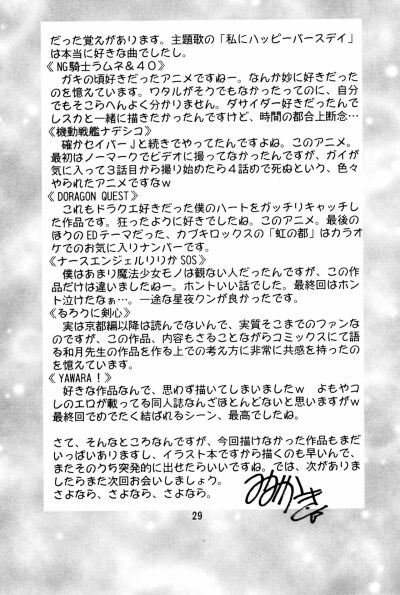 だった覚えがあります。主題歌の「私にハッピーバースデイ」
は本当に好きな曲でしたし。
《NG騎士ラムネ＆40》
ガキの頃好きだったアニメですねー。なんか妙に好きだった
のを憶えています。ワタルがそうでもなかったってのに、自分
でもそこらへんよく分かりません。ダサイダー好きだったんで
レスカと一緒に描きたかったんですけど、時間の都合上断念…
《機動戦艦ナデシコ》
確かセイバーJと続きでやってたんですよね。このアニメ。
最初はノーマークでビデオに撮ってなかったんですが、ガイが
気に入って3話目から撮り始めたら4話めで死ぬという、色々
やられたアニメですなw
《DORAGON QUEST》
これもドラクエ好きだった僕のハートをガッチリキャッチし
た作品です。狂ったように好きでしたね。このアニメ。最後の
ほうのEDテーマだった、カブキロックスの「虹の都」はカラオ
ケでのお気に入りナンバーです。
《ナースエンジェルりりかSOS》
僕はあまり魔法少女モノは観ない人だったんですが、この作
品だけは違いましたねー。ホントいい話でした。最終回はホン
ト泣けたなぁ…。一途な星夜クンが良かったです。
《るろうに剣心》
実は京都編以降は読んでないんで、実質そこまでのファンな
のですが、この作品、内容もさることながらコミックスにて語
る和月先生の作品を作る上での考え方に非常に共感を持ったの
を憶えています。
《YAWARA！》
好きな作品なんで、思わず描いてしまいましたw　よもやコ
レのエロが載ってる同人誌なんざほとんどないと思いますがw
最終回でめでたく結ばれるシーン、最高でしたね。
さて、そんなところなんですが、今回描けなかった作品もまだ
いっぱいありますし、イラスト本ですから描くのも早いんで、
またそのうち突発的に出せたらいいですね。では、次がありま
したらまた次回お会いしましょう。
さよなら、さよなら、さよなら。
29